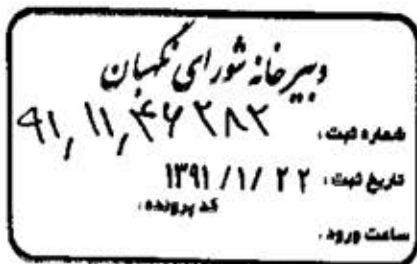 دبیرخانه شورای نگهبان
شماره ثبت: ۹۱,۱۱,۴۶۲۸۲
تاریخ ثبت: ۱۳۹۱/۱/۲۲
کد پرونده:
ساعت ورود: